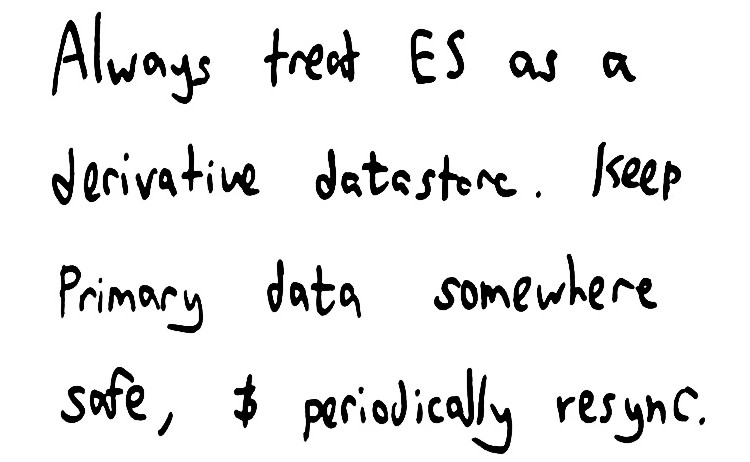 Always treat ES as a
derivative datastore. Keep
Primary data somewhere
safe, & periodically resync.